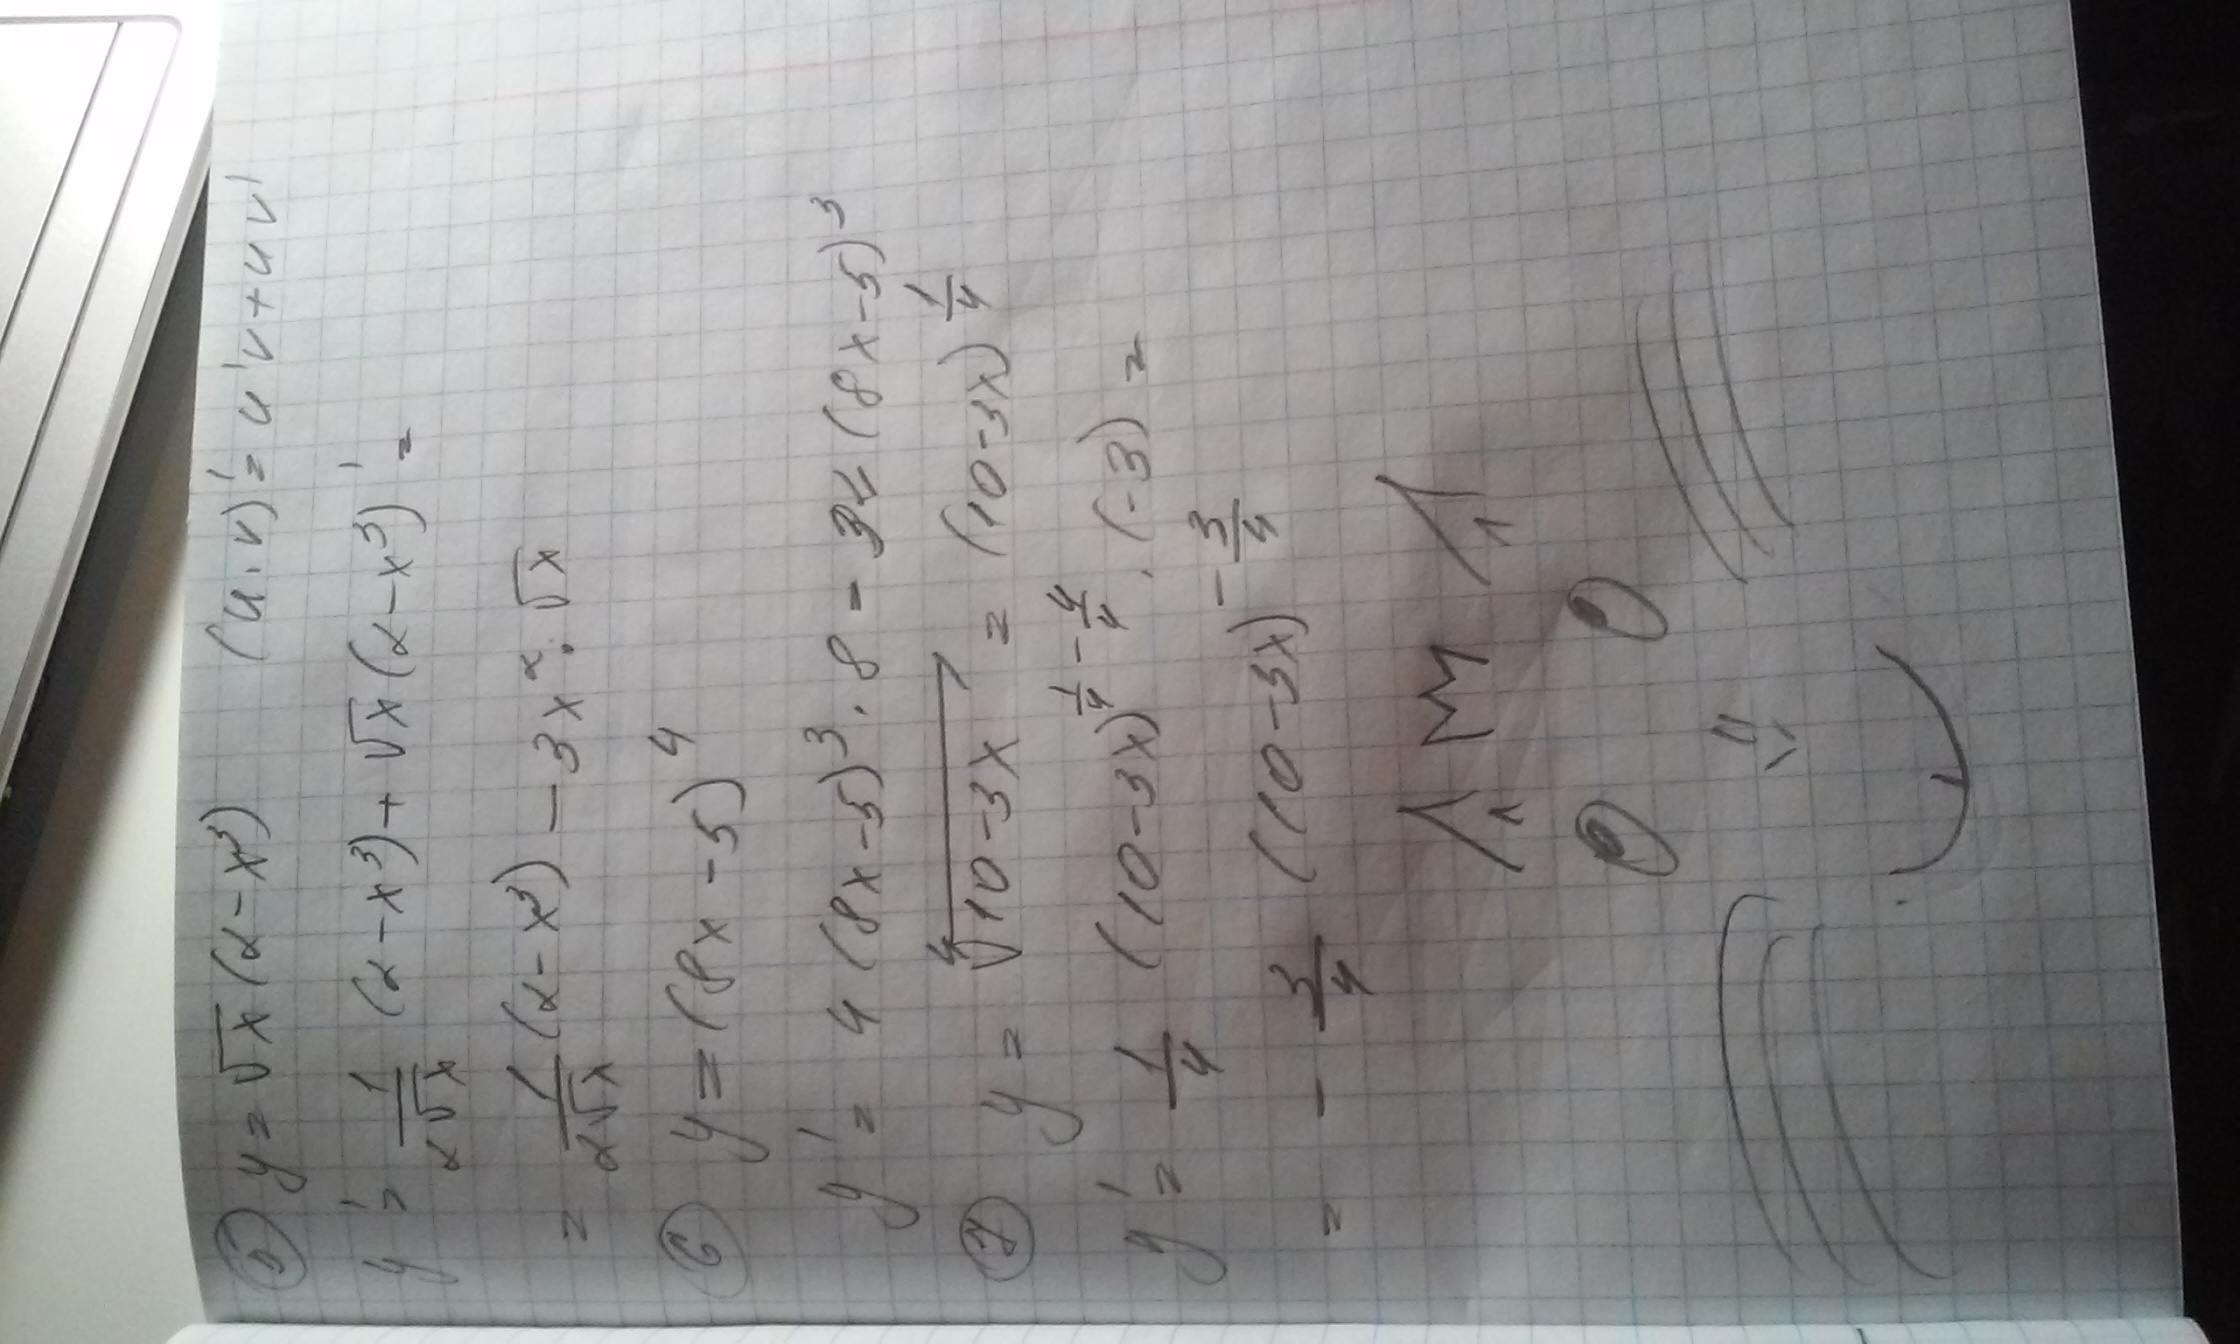 ⑤ y = √x (2 - x³) (u·v)' = u'v + uv'
y' = 1/(2√x) (2 - x³) + √x (2 - x³)' =
= 1/(2√x) (2 - x³) - 3x² · √x
⑥ y = (8x - 5)⁴
y' = 4 (8x - 5)³ · 8 = 32 (8x - 5)³
⑦ y = ⁴√(10 - 3x) = (10 - 3x)^(1/4)
y' = 1/4 (10 - 3x)^(1/4 - 4/4) · (-3) =
= - 3/4 (10 - 3x)^(-3/4)